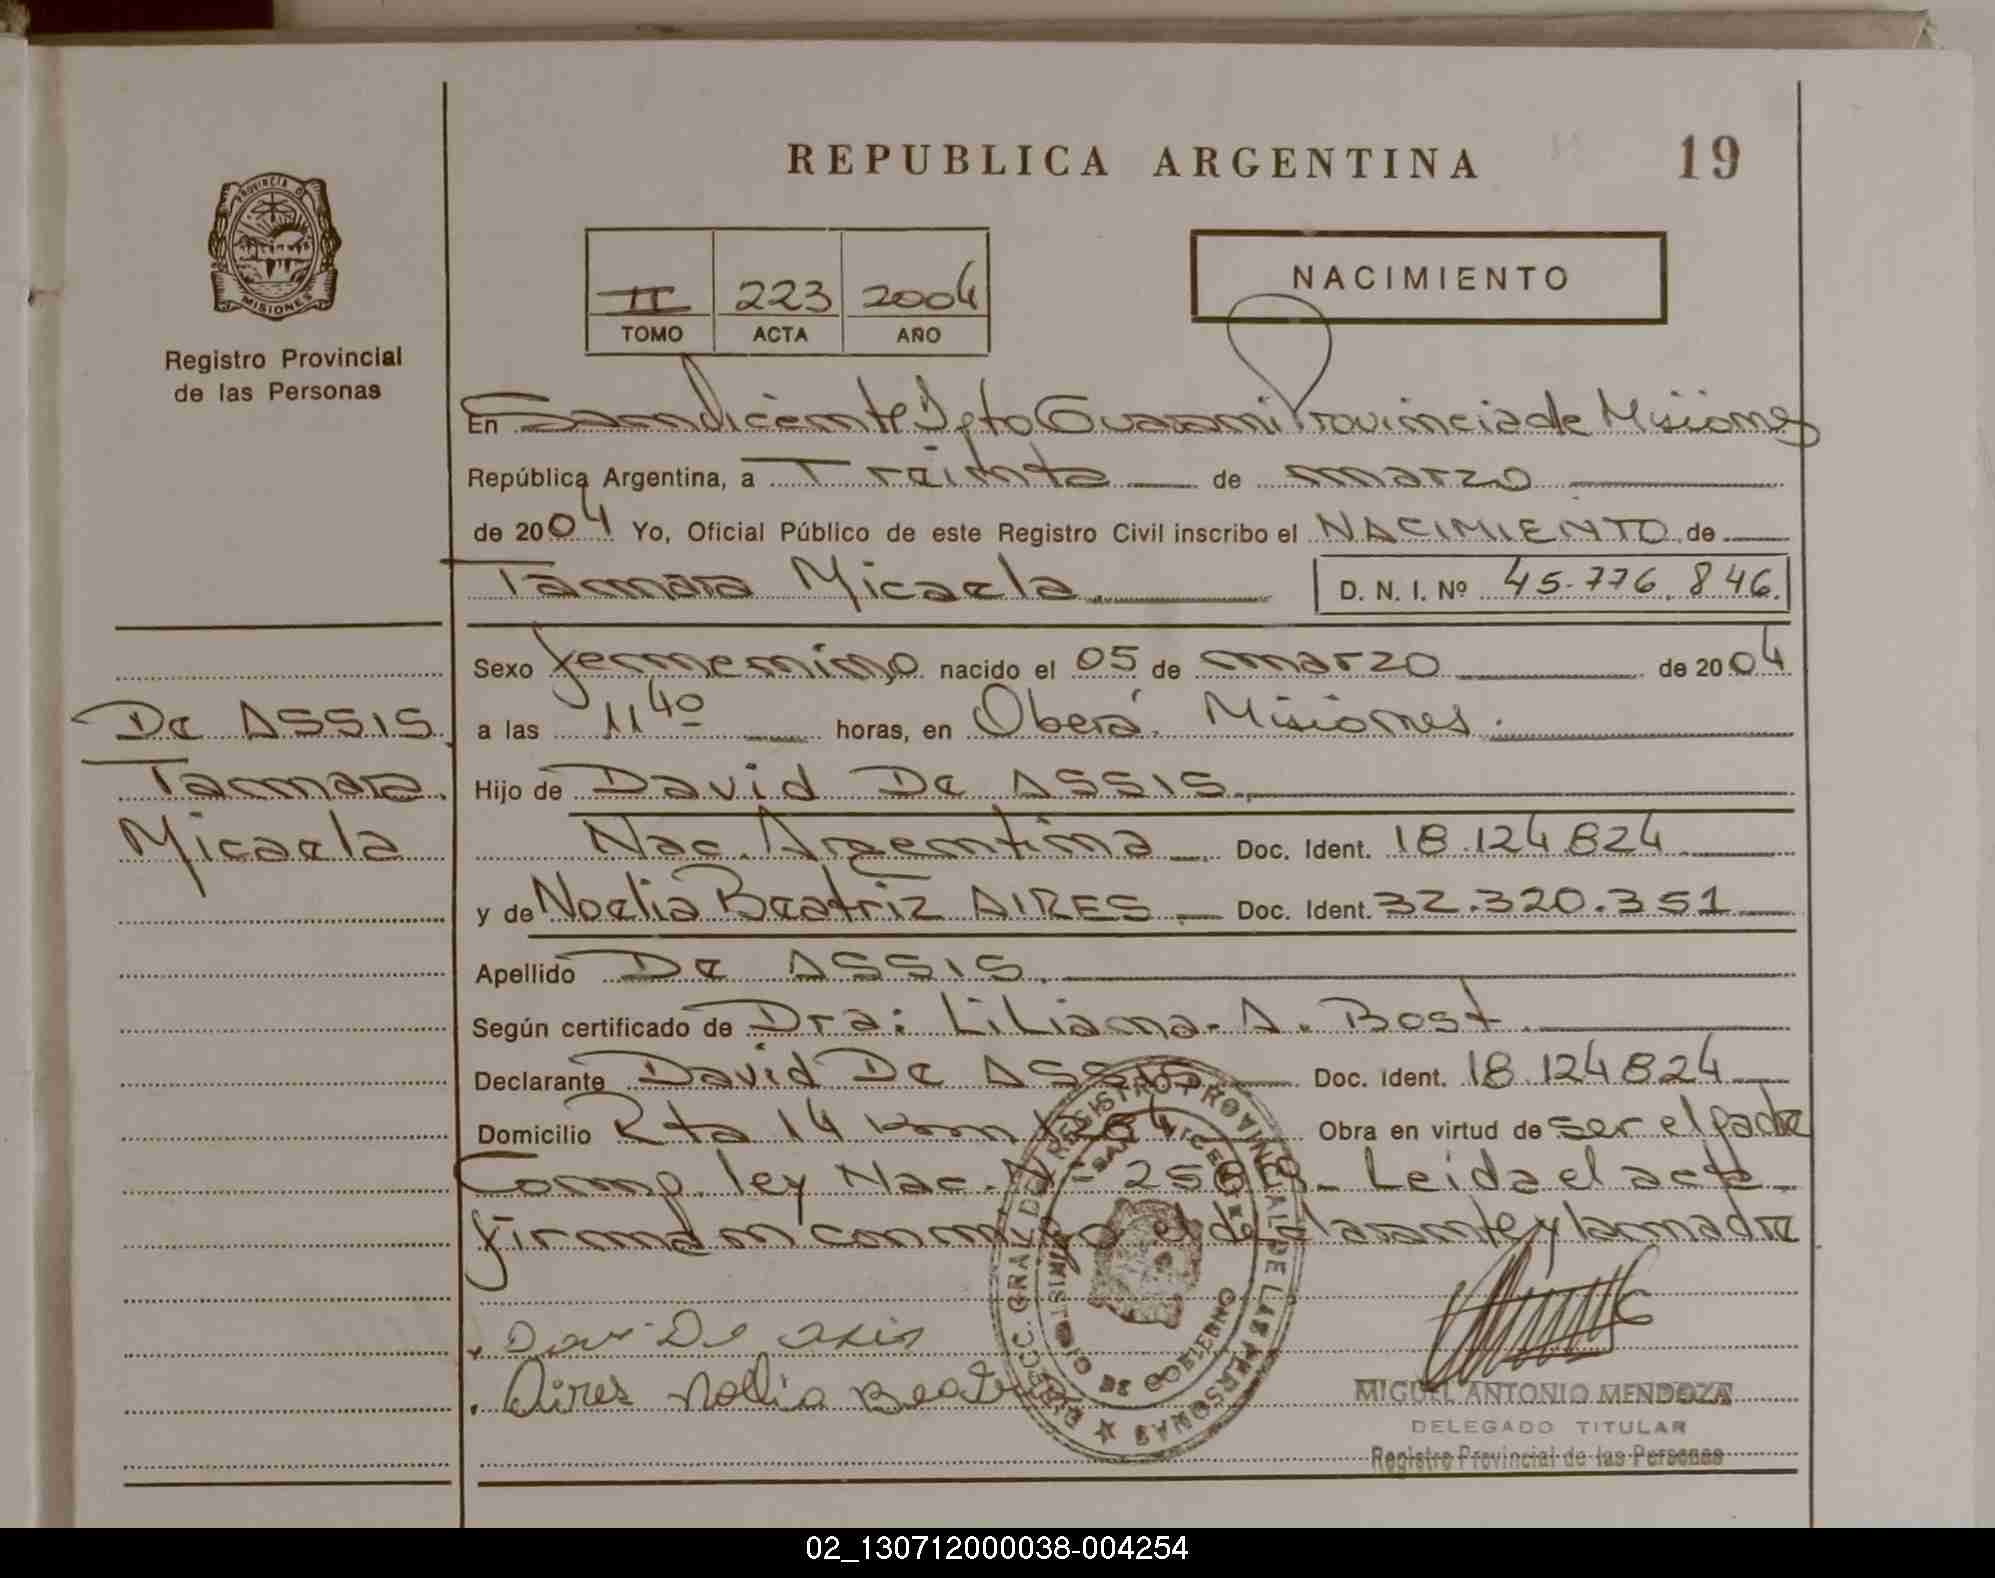 REPUBLICA ARGENTINA 19
PROVINCIA D
MISIONES
Registro Provincial
de las Personas
II 223 2004
TOMO ACTA AÑO
NACIMIENTO
En San Vicente Dpto Guarani Provincia de Misiones
República Argentina, a Treinta de marzo
de 2004 Yo, Oficial Público de este Registro Civil inscribo el NACIMIENTO de
Tamara Micaela. D. N. I. Nº 45.776.846.
Sexo femenino nacido el 05 de marzo de 2004
De ASSIS.
Tamara
Micaela
a las 11 40 horas, en Oberá. Misiones.
Hijo de David De ASSIS.
Nac. Argentina Doc. Ident. 18.124.824
y de Noelia Beatriz AIRES Doc. Ident. 32.320.351
Apellido De ASSIS.
Según certificado de Dra: Liliana. A. Bost.
Declarante David De ASSIS Doc. Ident. 18.124.824
Domicilio Rta 14 km 1264 Obra en virtud de ser el padre
Comp. ley Nac. Nº Leida el acta
firman conmigo el declarante y la madre
De
Aires Noelia Beatriz
DIRECC. GRAL DE REGISTRO PROVINCIAL DE LAS PERSONAS
SAN VICENTE
MINISTERIO DE GOBIERNO
MIGUEL ANTONIO MENDOZA
DELEGADO TITULAR
Registro Provincial de las Personas
02_130712000038-004254